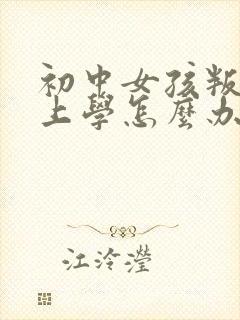 初中女孩叛
上學怎麼办
江泠瀅